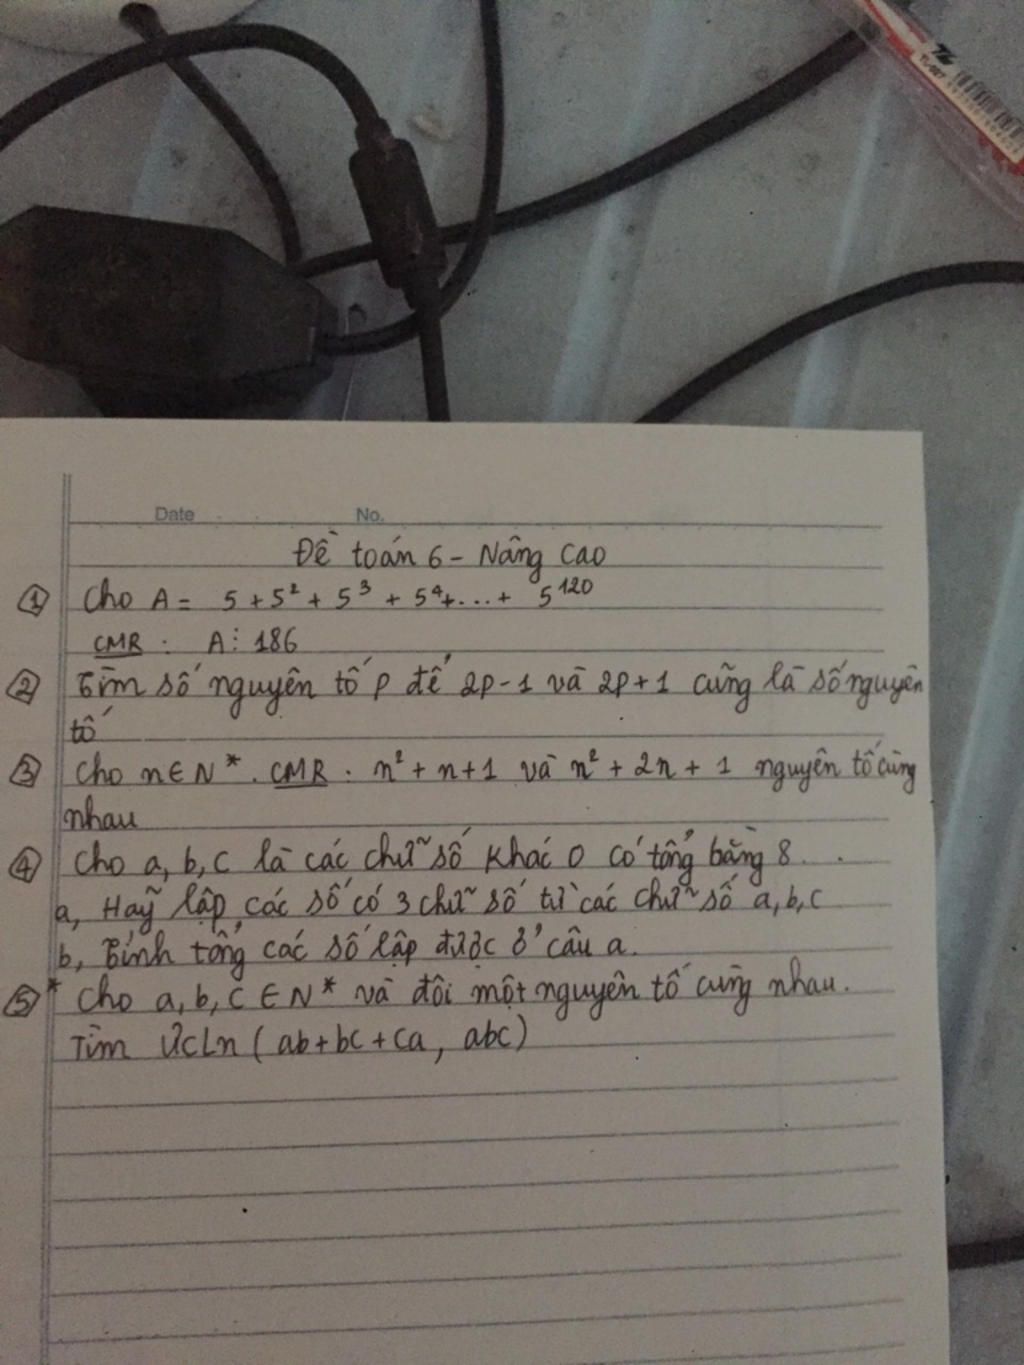 TL-087
Date No.
Đề toán 6 - Nâng cao
① Cho A = 5 + 5² + 5³ + 5⁴ + ... + 5¹²⁰
CMR : A ⋮ 186
② Tìm số nguyên tố p để 2p-1 và 2p+1 cũng là số nguyên
tố
③ Cho n ∈ N*. CMR : n² + n + 1 và n² + 2n + 1 nguyên tố cùng
nhau
④ Cho a, b, c là các chữ số khác 0 có tổng bằng 8.
a, Hãy lập các số có 3 chữ số từ các chữ số a, b, c
b, Tính tổng các số lập được ở câu a.
⑤* Cho a, b, c ∈ N* và đôi một nguyên tố cùng nhau.
Tìm ƯCLN (ab+bc+ca, abc)